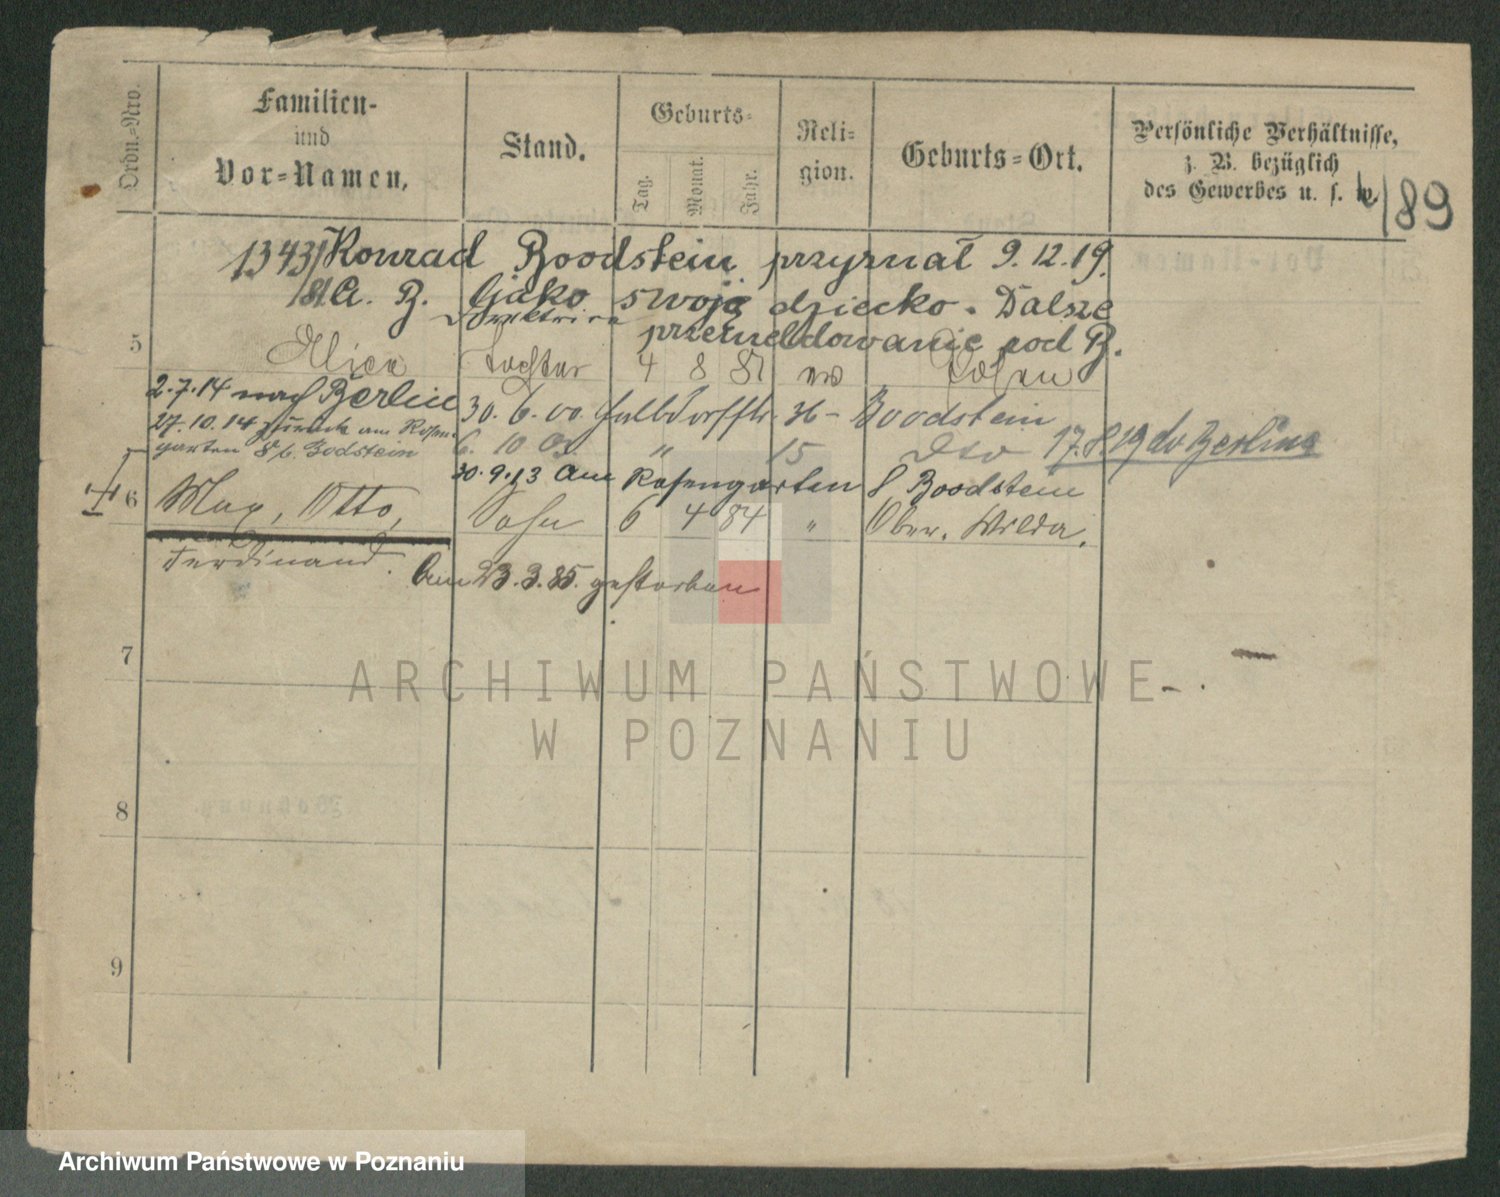 Ordn.-Nro.
Familien-
und
Vor-Namen.
Stand.
Geburts-
Tag.
Monat.
Jahr.
Reli-
gion.
Geburts-Ort.
Persönliche Verhältnisse,
z. B. bezüglich
des Gewerbes u. s. w.
189
1343/ Konrad Boodstein przyznał 9.12.19.
/81 A. B. jako swoje dziecko. Dalsze
przemeldowanie pod B.
5
Alice Tochter 4 8 81 ev Posen
2.7.14 nach Berlin 30. 6. 00 Halbdorfstr. 36 - Boodstein
27.10.14 zurück am Rosen-
garten 8 b. Bodstein 6. 10 " 15 dto 17.8.19 Berlin
30.9.13 Am Rosengarten 8 Boodstein
6 Max, Otto, Sohn 6 4 84 " Ober. Wilda.
Ferdinand. Am 23.3.85. gestorben
7
8
9
ARCHIWUM PAŃSTWOWE
W POZNANIU
Archiwum Państwowe w Poznaniu